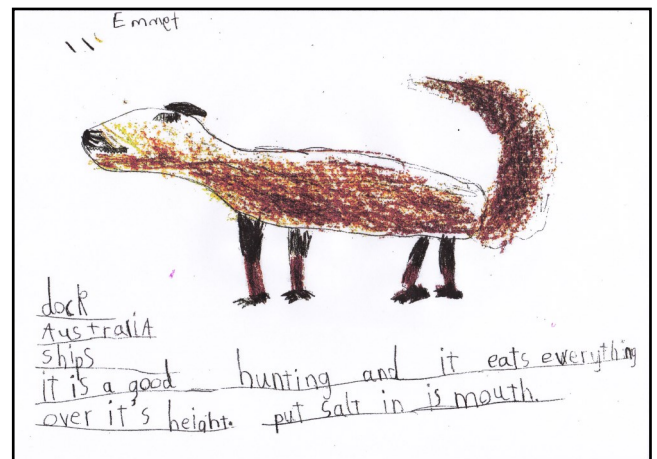 Emmet
dock
AustraliA
ships
it is a good hunting and it eats everything
over it's height. put salt in is mouth.